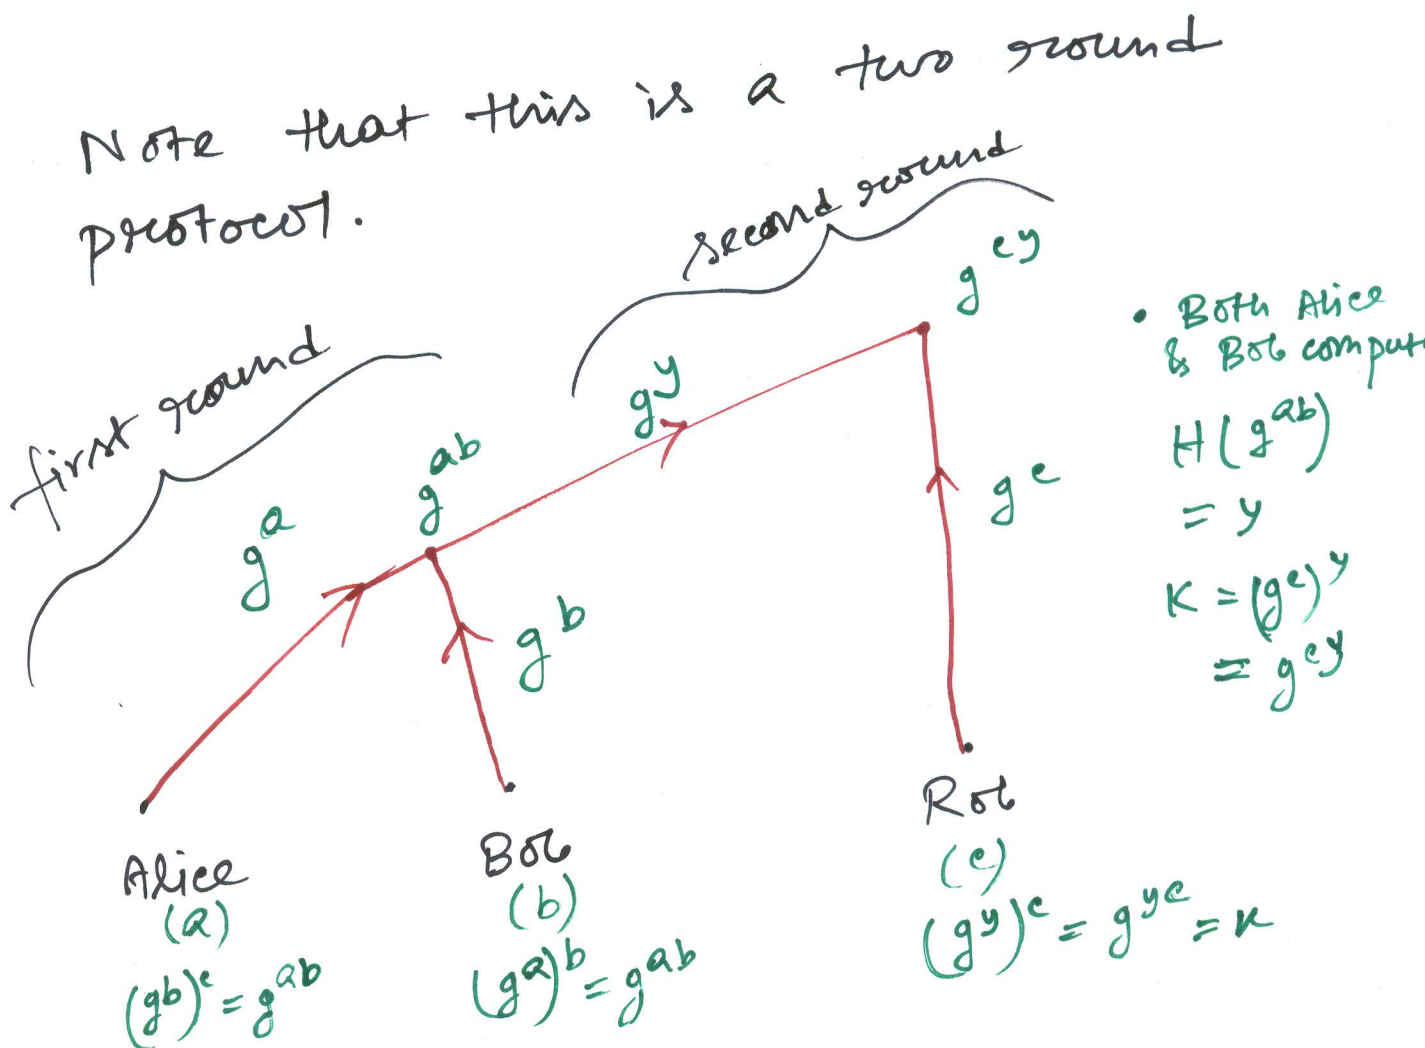 Note that this is a two round
protocol.
second round
first round
g^{cy}
g^y
g^{ab}
g^a
g^b
g^c
• Both Alice
& Bob comput
H(g^{ab})
= y
K = (g^c)^y
= g^{cy}
Alice
(a)
(g^b)^c = g^{ab}
Bob
(b)
(g^a)^b = g^{ab}
Rob
(c)
(g^y)^c = g^{yc} = K